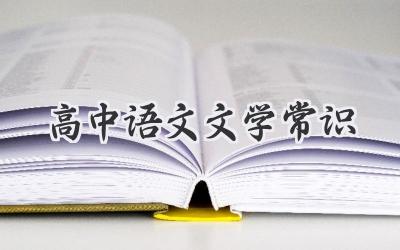 高中语文文学常识